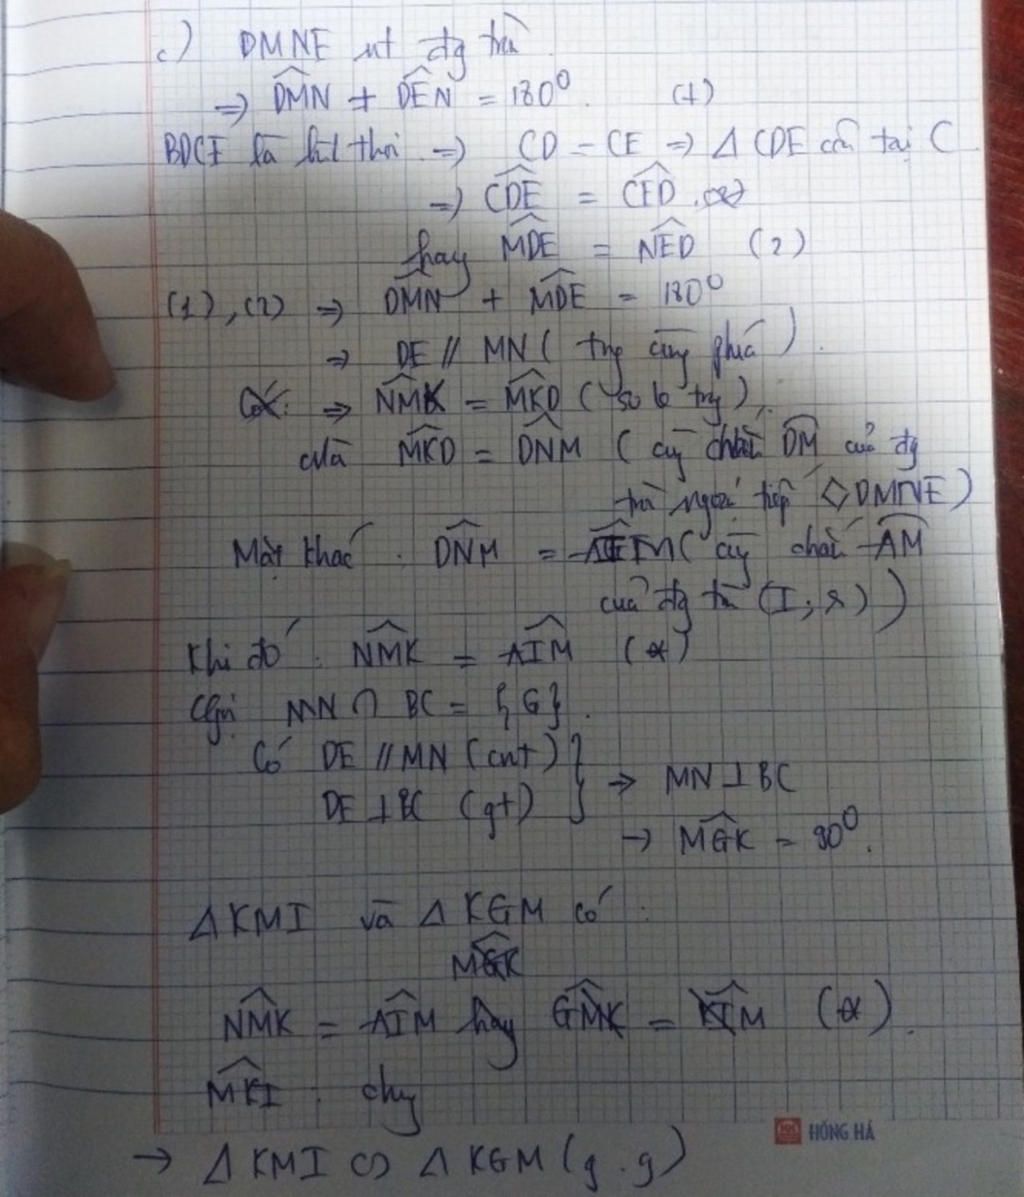 c) DMNE nt đg tròn
=> DMN + DEN = 180° (1)
BDCE là hình thoi => CD = CE => Δ CDE cân tại C
=> CDE = CED
hay MDE = NED (2)
(1), (2) => DMN + MDE = 180°
=> DE // MN ( trg cùng phía )
=> NMK = MKD ( so le trg )
mà MKD = DNM ( cùg chắn DM của đg
tròn ngoại tiếp ◇DMNE )
Mặt khác : DNM = AIM ( cùg chắn AM
của đg tròn (I; r) )
Khi đó : NMK = AIM (*)
Gọi MN ∩ BC = {G}
Có DE // MN (cmt) }
DE ⊥ BC (gt) } => MN ⊥ BC
→ MGK = 90°.
Δ KMI và Δ KGM có :
NMK = AIM hay GMK = KIM (*).
MKI : chg
→ Δ KMI ∽ Δ KGM (g.g)
HỒNG HÀ